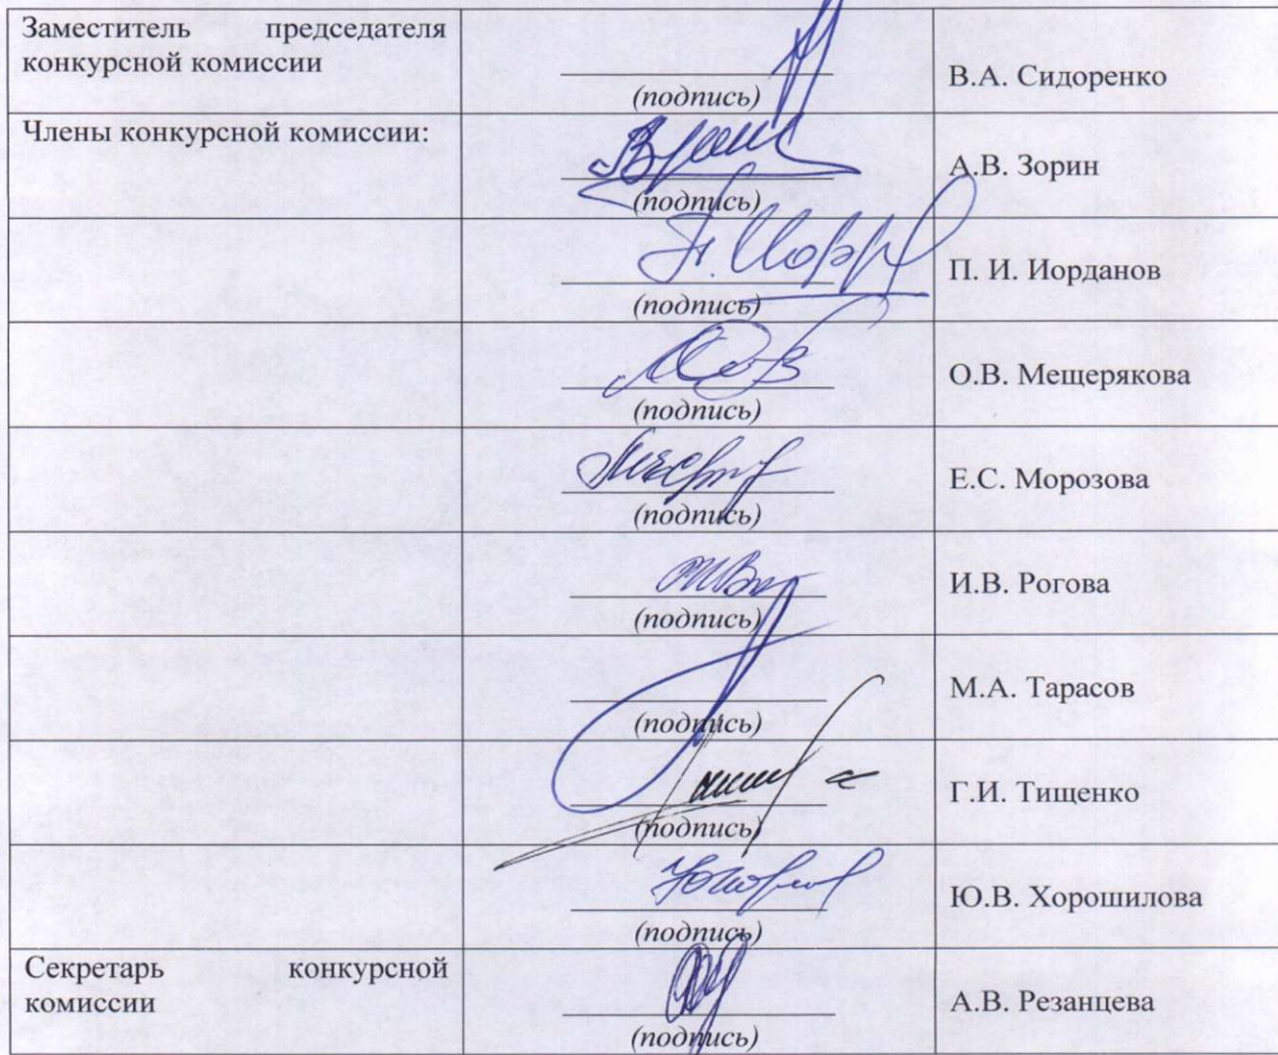 Заместитель председателя
конкурсной комиссии
(подпись)
В.А. Сидоренко
Члены конкурсной комиссии:
(подпись)
А.В. Зорин
(подпись)
П. И. Иорданов
(подпись)
О.В. Мещерякова
(подпись)
Е.С. Морозова
(подпись)
И.В. Рогова
(подпись)
М.А. Тарасов
(подпись)
Г.И. Тищенко
(подпись)
Ю.В. Хорошилова
Секретарь конкурсной
комиссии
(подпись)
А.В. Резанцева